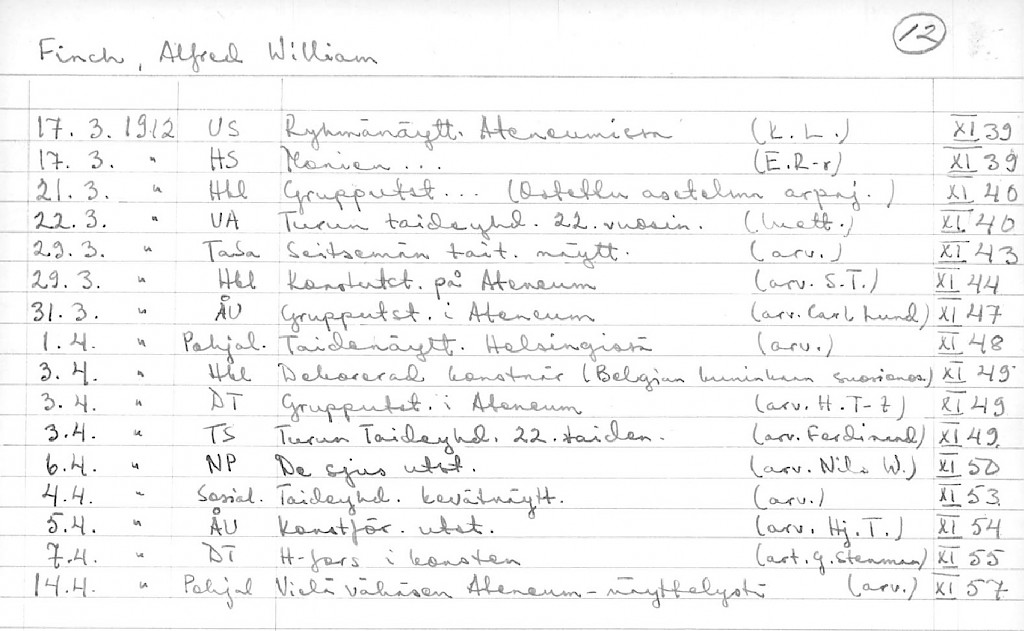 12
Finch, Alfred William
17. 3. 1912 US Ryhmänäytt. Ateneumissa (K. L.) XI 39
17. 3. " HS Monien... (E.R-r) XI 39
21. 3. " Hbl Grupputst... (Ostettu asetelma arpaj.) XI 40
22. 3. " UA Turun taideyhd. 22. vuosin. XI 40
29. 3. " TaSa Seitsemän tait. näytt. (arv.) XI 43
29. 3. " Hbl Konstutst. på Ateneum (arv. S.T.) XI 44
31. 3. " ÅU Grupputst. i Ateneum (arv. Carl Lund) XI 47
1. 4. " Pohjal. Taidenäytt. Helsingissä (arv.) XI 48
3. 4. " Hbl Dekorerad konstnär (Belgian kuninkaan suosionos.) XI 49
3. 4. " DT Grupputst. i Ateneum (arv. H. T-z) XI 49
3.4. " TS Turun Taideyhd. 22. taiden. (arv. Ferdinand) XI 49.
6.4. " NP De sjus utst. (arv. Nils W.) XI 50
4.4. " Sosial. Taideyhd. kevätnäytt. (arv.) XI 53
5.4. " ÅU Konstför. utst. (arv. Hj. T.) XI 54
7.4. " DT H-fors i konsten (art. G. Stenman) XI 55
14.4. " Pohjal Vielä vähäsen Ateneum-näyttelystä (arv.) XI 57